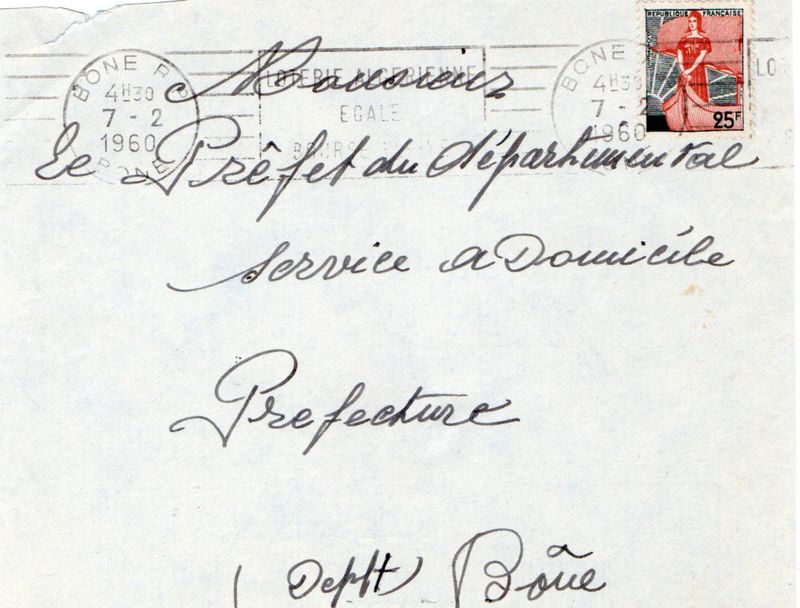 REPUBLIQUE FRANÇAISE
25F
BONE R.P.
4H30
7 - 2
1960
BONE
LOTERIE ALGERIENNE
EGALE
BONE
4H30
7 - 2
1960
LO
Monsieur
Le Prêfet du départhemental
service a Domicile
Prefecture
(Deptt) Bône